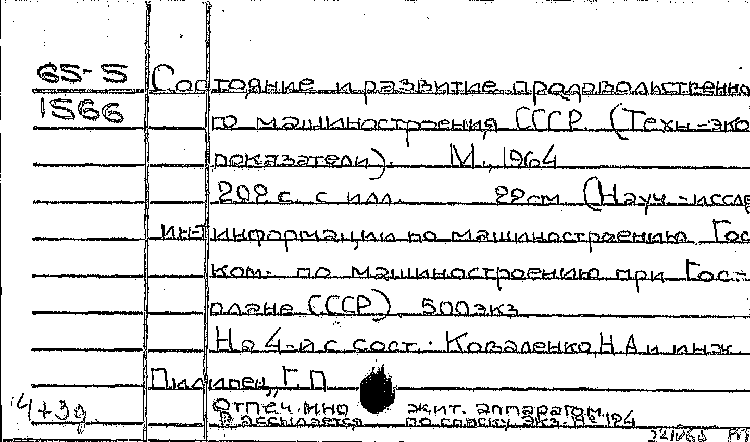 65-5
1566
Состояние и развитие продовольственно
го машиностроения СССР. (Техн.-эко
показатели). М., 1964
202 с. с илл. 22 см (Науч.-иссле
ин-т информации по машиностроению Гос
ком. по машиностроению при Гос-
плане СССР) 500 экз.
На 4-й с сост.: Коваленко, Н.А и инж.
Г.П
4+3д
Отпеч. множит. аппаратом.
Рассылается по списку. Экз. № 194